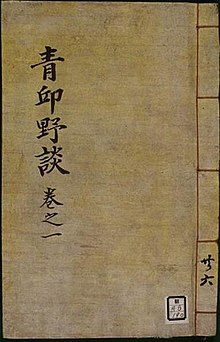 青邱野談 卷之一
卄六